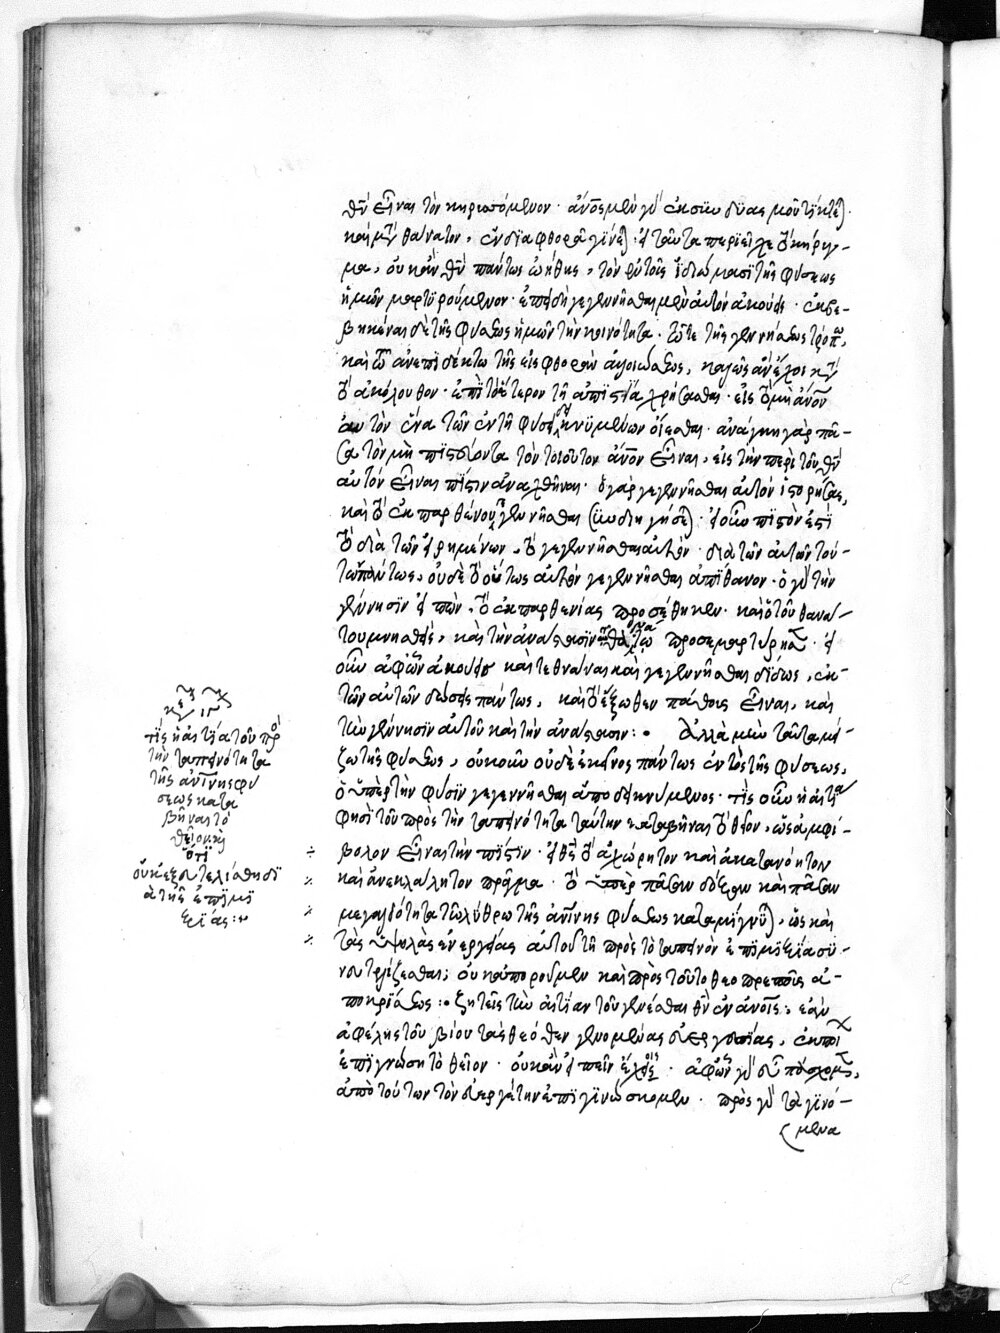 θν̄ εἶναι τὸν κηρυσσόμενον· ἄνο̄ς μὲν γὰρ ἐκ συνδυασμοῦ τίκτεται·
καὶ μετὰ θάνατον, ἐν διαφθορᾷ γίνεται· εἰ ταῦτα περιεῖχε τὸ κήρυγ-
μα, οὐκ ἂν θν̄ πάντως ᾠήθης, τὸν ἐν τοῖς ἰδιώμασι τῆς φύσεως
ἡμῶν μαρτυρούμενον· ἐπειδὴ γεγεννῆσθαι μὲν αὐτὸν ἀκούεις· ἐκβε-
βηκέναι δὲ τῆς φύσεως ἡμῶν τὴν κοινότητα· τῷ τε τῆς γεννήσεως τρόπῳ,
καὶ τῷ ἀνεπιδέκτῳ τῆς εἰς φθορὰν ἀλλοιώσεως, καλῶς ἂν ἔχοι κατὰ
τὸ ἀκόλουθον· ἐπὶ τὸ ἕτερον τῇ ἀπιστίᾳ χρήσασθαι· εἰς τὸ μὴ ἄνον̄
αὐτὸν ἕνα τῶν ἐν τῇ φύσει δεικνυμένων οἴεσθαι· ἀνάγκη γὰρ πᾶ-
σα τὸν μὴ πιστεύοντα τὸν τοιοῦτον ἄνον̄ εἶναι, εἰς τὴν περὶ τοῦ θν̄
αὐτὸν εἶναι πίστιν ἀναχθῆναι· ὁ γὰρ γεγεννῆσθαι αὐτὸν ἱστορήσας,
καὶ τὸ ἐκ παρθένου γεγεννῆσθαι συνδιηγήσατο· εἰ οὖν πιστόν ἐστι
τὸ διὰ τῶν εἰρημένων, τὸ γεγεννῆσθαι αὐτὸν· διὰ τῶν αὐτῶν τού-
των πάντως, οὐδὲ τὸ οὕτως αὐτὸν γεγεννῆσθαι ἀπίθανον· ὁ γὰρ τὴν
γέννησιν εἰπών, τὸ ἐκ παρθενίας προσέθηκεν· καὶ ὁ τοῦ θανά-
του μνησθείς, καὶ τὴν ἀνάστασιν τῷ θανάτῳ προσεμαρτύρησεν· εἰ
οὖν ἀφ' ὧν ἀκούεις καὶ τεθνάναι καὶ γεγεννῆσθαι δίδως, ἐκ
τῶν αὐτῶν δώσεις πάντως, καὶ τὸ ἔξωθεν πάθους εἶναι, καὶ
τὴν γέννησιν αὐτοῦ καὶ τὴν ἀνάστασιν:· Ἀλλὰ μὴν ταῦτα μεί-
ζω τῆς φύσεως, οὐκοῦν οὐδὲ ἐκεῖνος πάντως ἐντὸς τῆς φύσεως,
ὁ ὑπὲρ τὴν φύσιν γεγεννῆσθαι ἀποδεικνύμενος· τίς οὖν ἡ αἰτία
φησὶ τοῦ πρὸς τὴν ταπεινότητα ταύτην καταβῆναι τὸ θεῖον, ὡς ἀμφί-
βολον εἶναι τὴν πίστιν· εἰ θς̄ τὸ ἀχώρητον καὶ ἀκατανόητον
καὶ ἀνεκλάλητον πρᾶγμα· τὸ ὑπὲρ πᾶσαν δόξαν καὶ πᾶσαν
μεγαλειότητα τῷ λύθρῳ τῆς ἀνίνης φύσεως καταμίγνυται, ὡς καὶ
τὰς ὑψηλὰς ἐνεργείας αὐτοῦ τῇ πρὸς τὸ ταπεινὸν ἐπιμιξίᾳ συ-
νευτελίζεσθαι; οὐκ ἀποροῦμεν καὶ πρὸς τοῦτο θεοπρεποῦς ἀ-
ποκρίσεως:· ζητεῖς τὴν αἰτίαν τοῦ γενέσθαι θν̄ ἐν ἀνοις̄; ἐὰν
ἀφέλῃς τοῦ βίου τὰς θεόθεν γενομένας εὐεργεσίας, ἐκ ποίων
ἐπιγνώσῃ τὸ θεῖον· οὐκ ἂν εἰπεῖν ἔχοις· ἀφ' ὧν γὰρ εὖ πάσχομεν,
ἀπὸ τούτων τὸν εὐεργέτην ἐπιγινώσκομεν· πρὸς γὰρ τὰ γινό-
μενα
κεφ ιδ
τίς ἡ αἰτία τοῦ πρὸ
τὴν ταπεινότητα
τῆς ἀνίνης φύ
σεως κατα
βῆναι τὸ
θεῖον· κὴ
ὅτι
οὐκ ἐξευτελίσθη δι
ὰ τῆς ἐπιμι
ξίας:·